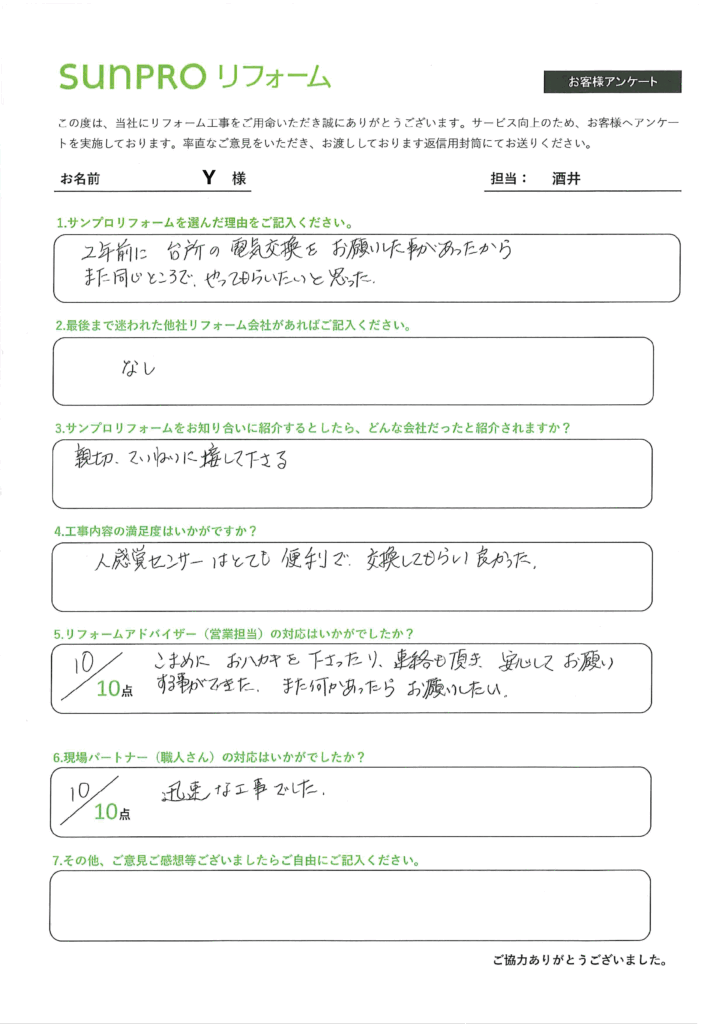 sunPRO リフォーム
お客様アンケート
この度は、当社にリフォーム工事をご用命いただき誠にありがとうございます。サービス向上のため、お客様へアンケー
トを実施しております。率直なご意見をいただき、お渡ししております返信用封筒にてお送りください。
お名前 Y 様 担当： 酒井
1.サンプロリフォームを選んだ理由をご記入ください。
2年前に 台所の電気交換を お願いした事があったから
また同じところで、やってもらいたいと思った.
2.最後まで迷われた他社リフォーム会社があればご記入ください。
なし
3.サンプロリフォームをお知り合いに紹介するとしたら、どんな会社だったと紹介されますか？
親切、ていねいに接して下さる
4.工事内容の満足度はいかがですか？
人感覚センサーはとても 便利で、交換してもらい良かった.
5.リフォームアドバイザー（営業担当）の対応はいかがでしたか？
10/10点
こまめに おハガキを下さったり、連絡も頂き、安心してお願い
する事ができた. また何かあったら お願いしたい.
6.現場パートナー（職人さん）の対応はいかがでしたか？
10/10点
迅速な工事でした.
7.その他、ご意見ご感想等ございましたらご自由にご記入ください。
ご協力ありがとうございました。